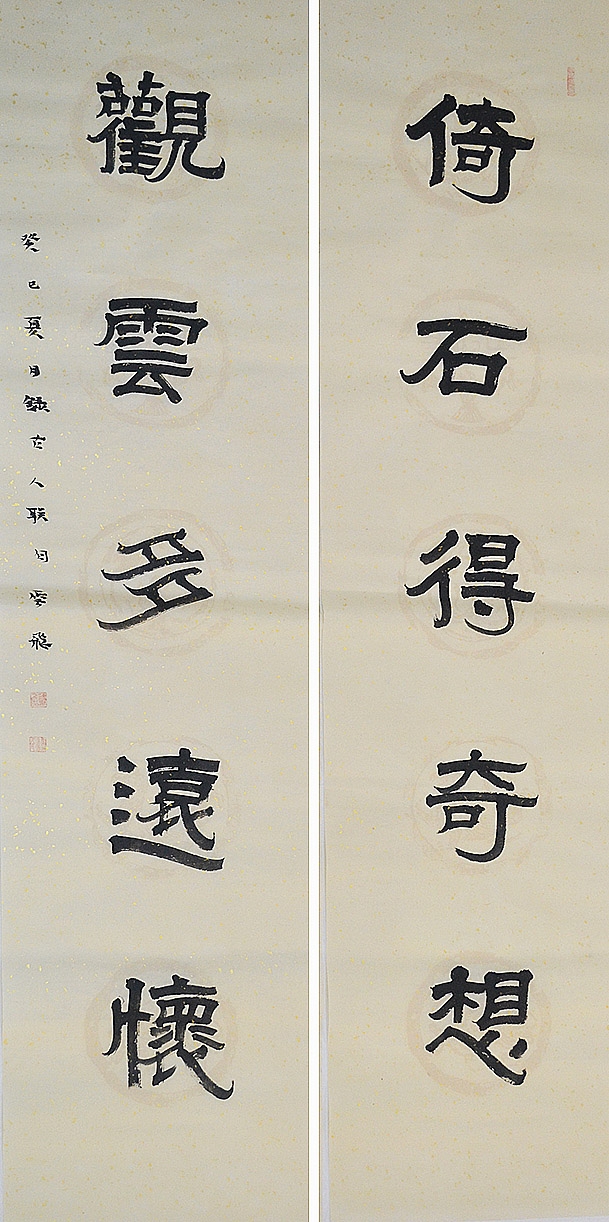 倚石得奇想
觀雲多遠懷
癸巳夏月錄古人联句雲飛